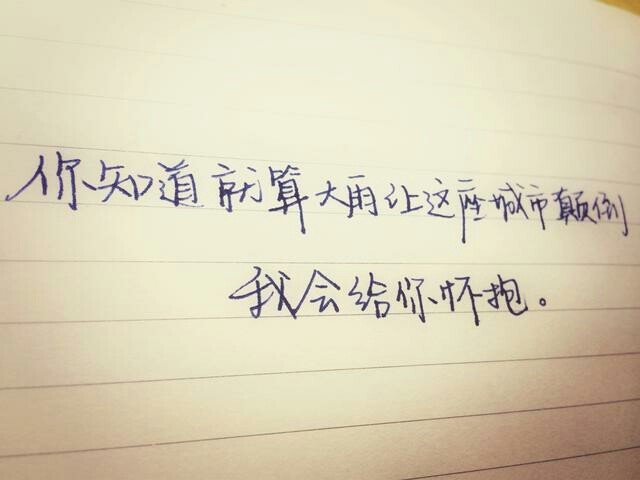 你知道就算大雨让这座城市颠倒
我会给你怀抱。